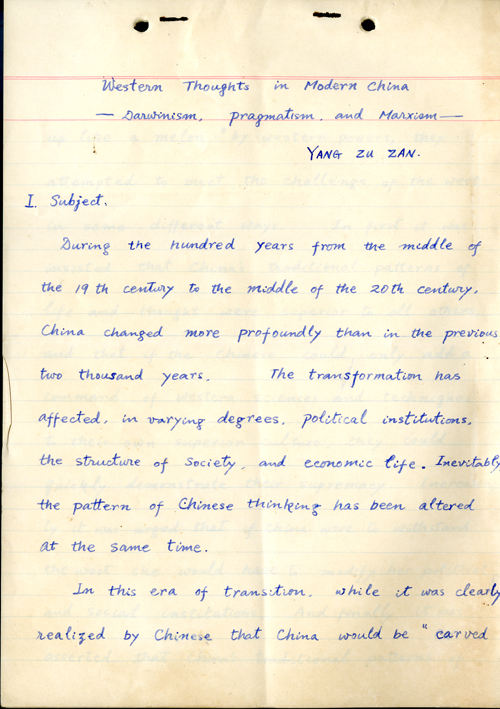 Western Thoughts in Modern China
— Darwinism, pragmatism, and Marxism —
YANG ZU ZAN.
I. Subject.
During the hundred years from the middle of
the 19th century to the middle of the 20th century,
China changed more profoundly than in the previous
two thousand years. The transformation has
affected, in varying degrees, political institutions,
the structure of society, and economic life. Inevitably
the pattern of Chinese thinking has been altered
at the same time.
In this era of transition, while it was clearly
realized by Chinese that China would be "carved